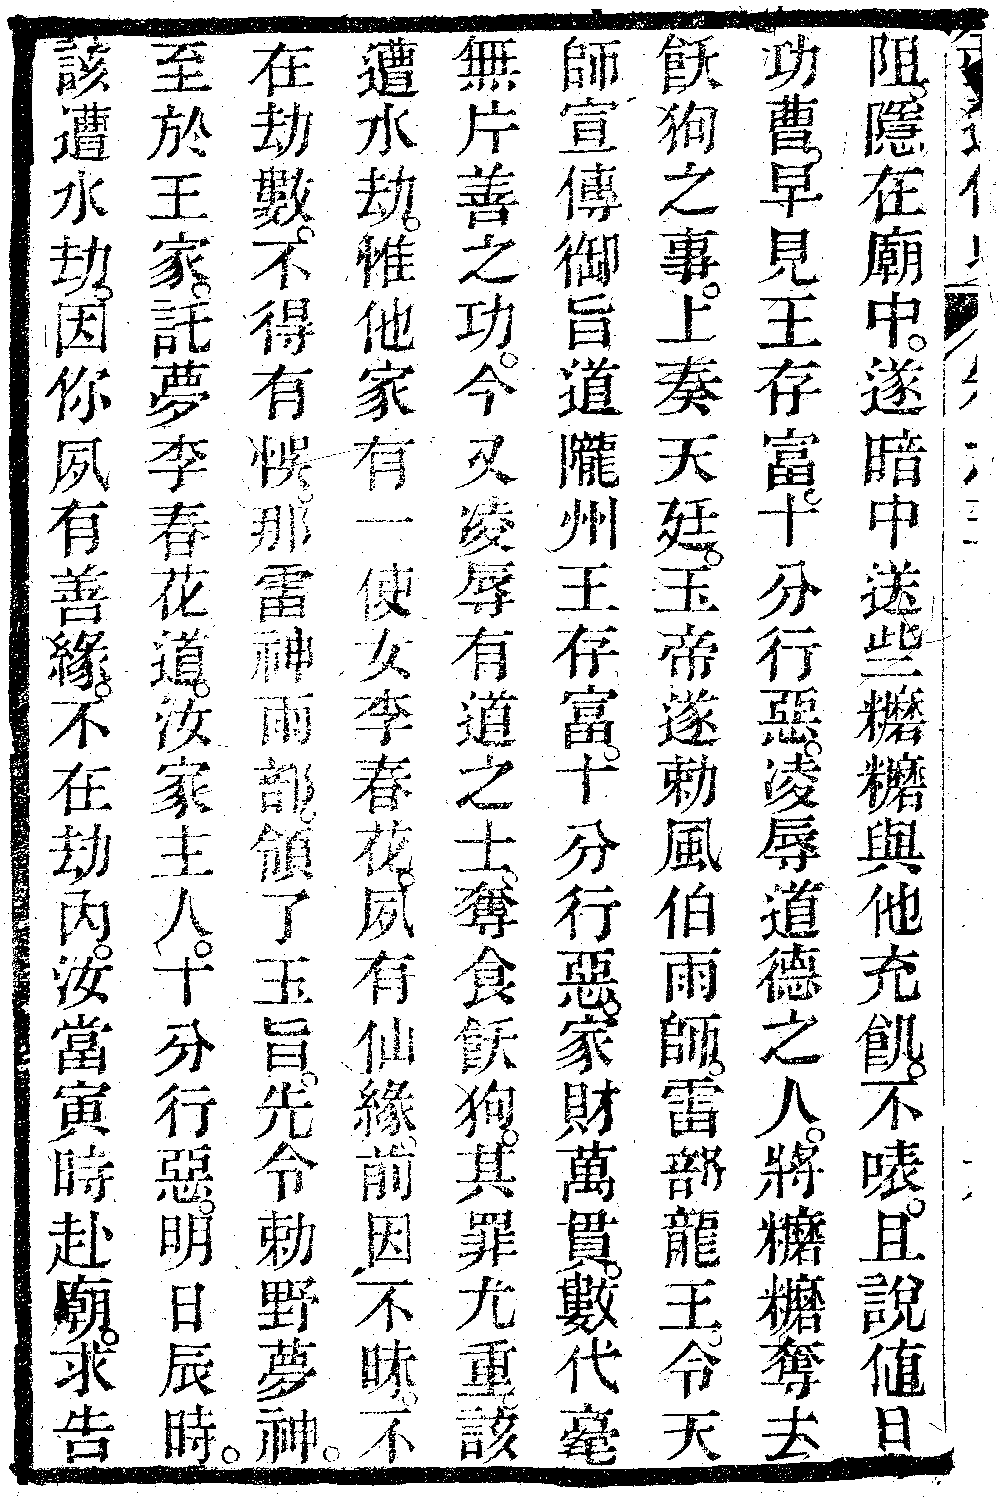 阻。隱在廟中。遂暗中送些糖糖與他充飢。不唩。且說値日
功曹。早見王存富。十分行惡。凌辱道德之人。將糖糖奪去
飫狗之事。上奏天廷。玉帝遂勅風伯雨師。雷部龍王。令天
師宣傳御旨道隴州王存富。十分行惡。家財萬貫。數代毫
無片善之功。今又凌辱有道之士。奪食飫狗。其罪尤重該
遭水劫。惟他家有一使女李春花。夙有仙緣。前因不昧。不
在劫數。不得有悞。那雷神雨部。領了玉旨。先令勅野夢神。
至於王家。託夢李春花道。汝家主人。十分行惡。明日辰時。
該遭水劫。因你夙有善緣。不在劫內。汝當寅時赴廟。求告